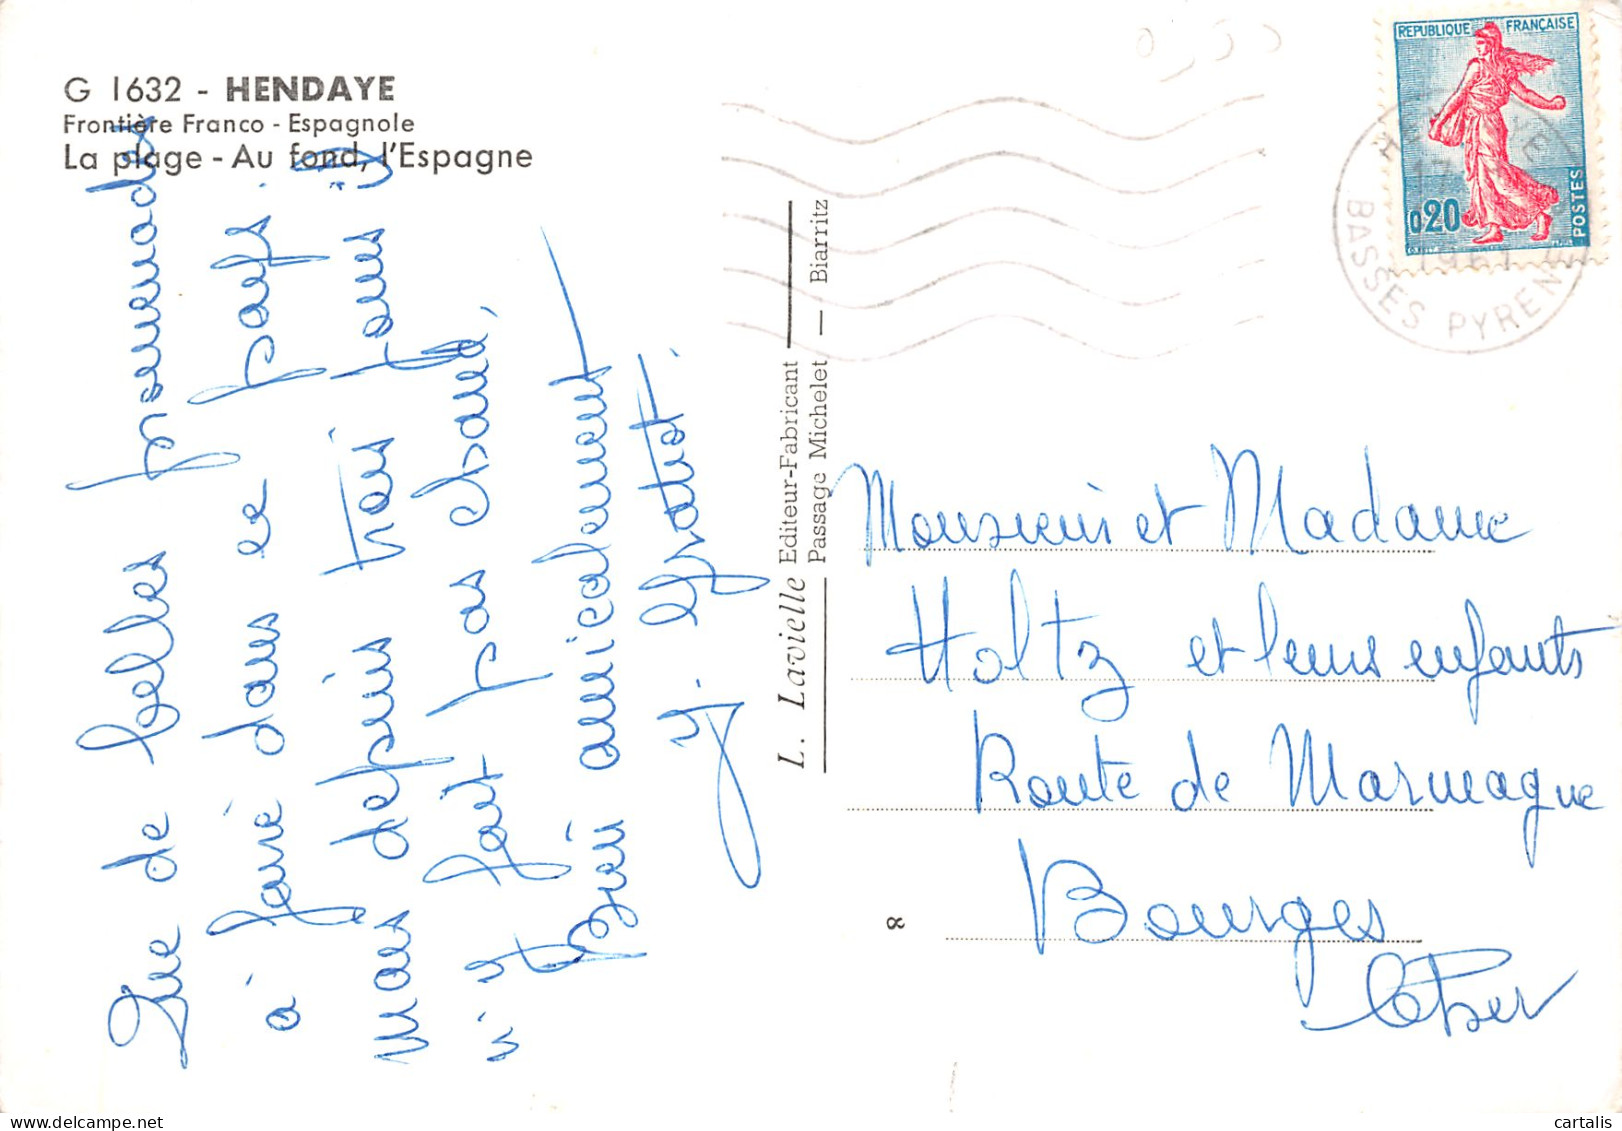 G 1632 - HENDAYE
Frontière Franco - Espagnole
La plage - Au fond, l'Espagne
Que de belles promenades
à faire dans ce pays.
Mais depuis trois jours il
n'y fait pas chaud,
Bien amicalement
y.
L. Lavielle Editeur-Fabricant
Passage Michelet — Biarritz
8
REPUBLIQUE FRANÇAISE
0,20
POSTES
HENDAYE
17
1961
BASSES PYRENEES
Monsieur et Madame
Holtz et leurs enfants
Route de Marmagne
Bourges
Cher
cartalis